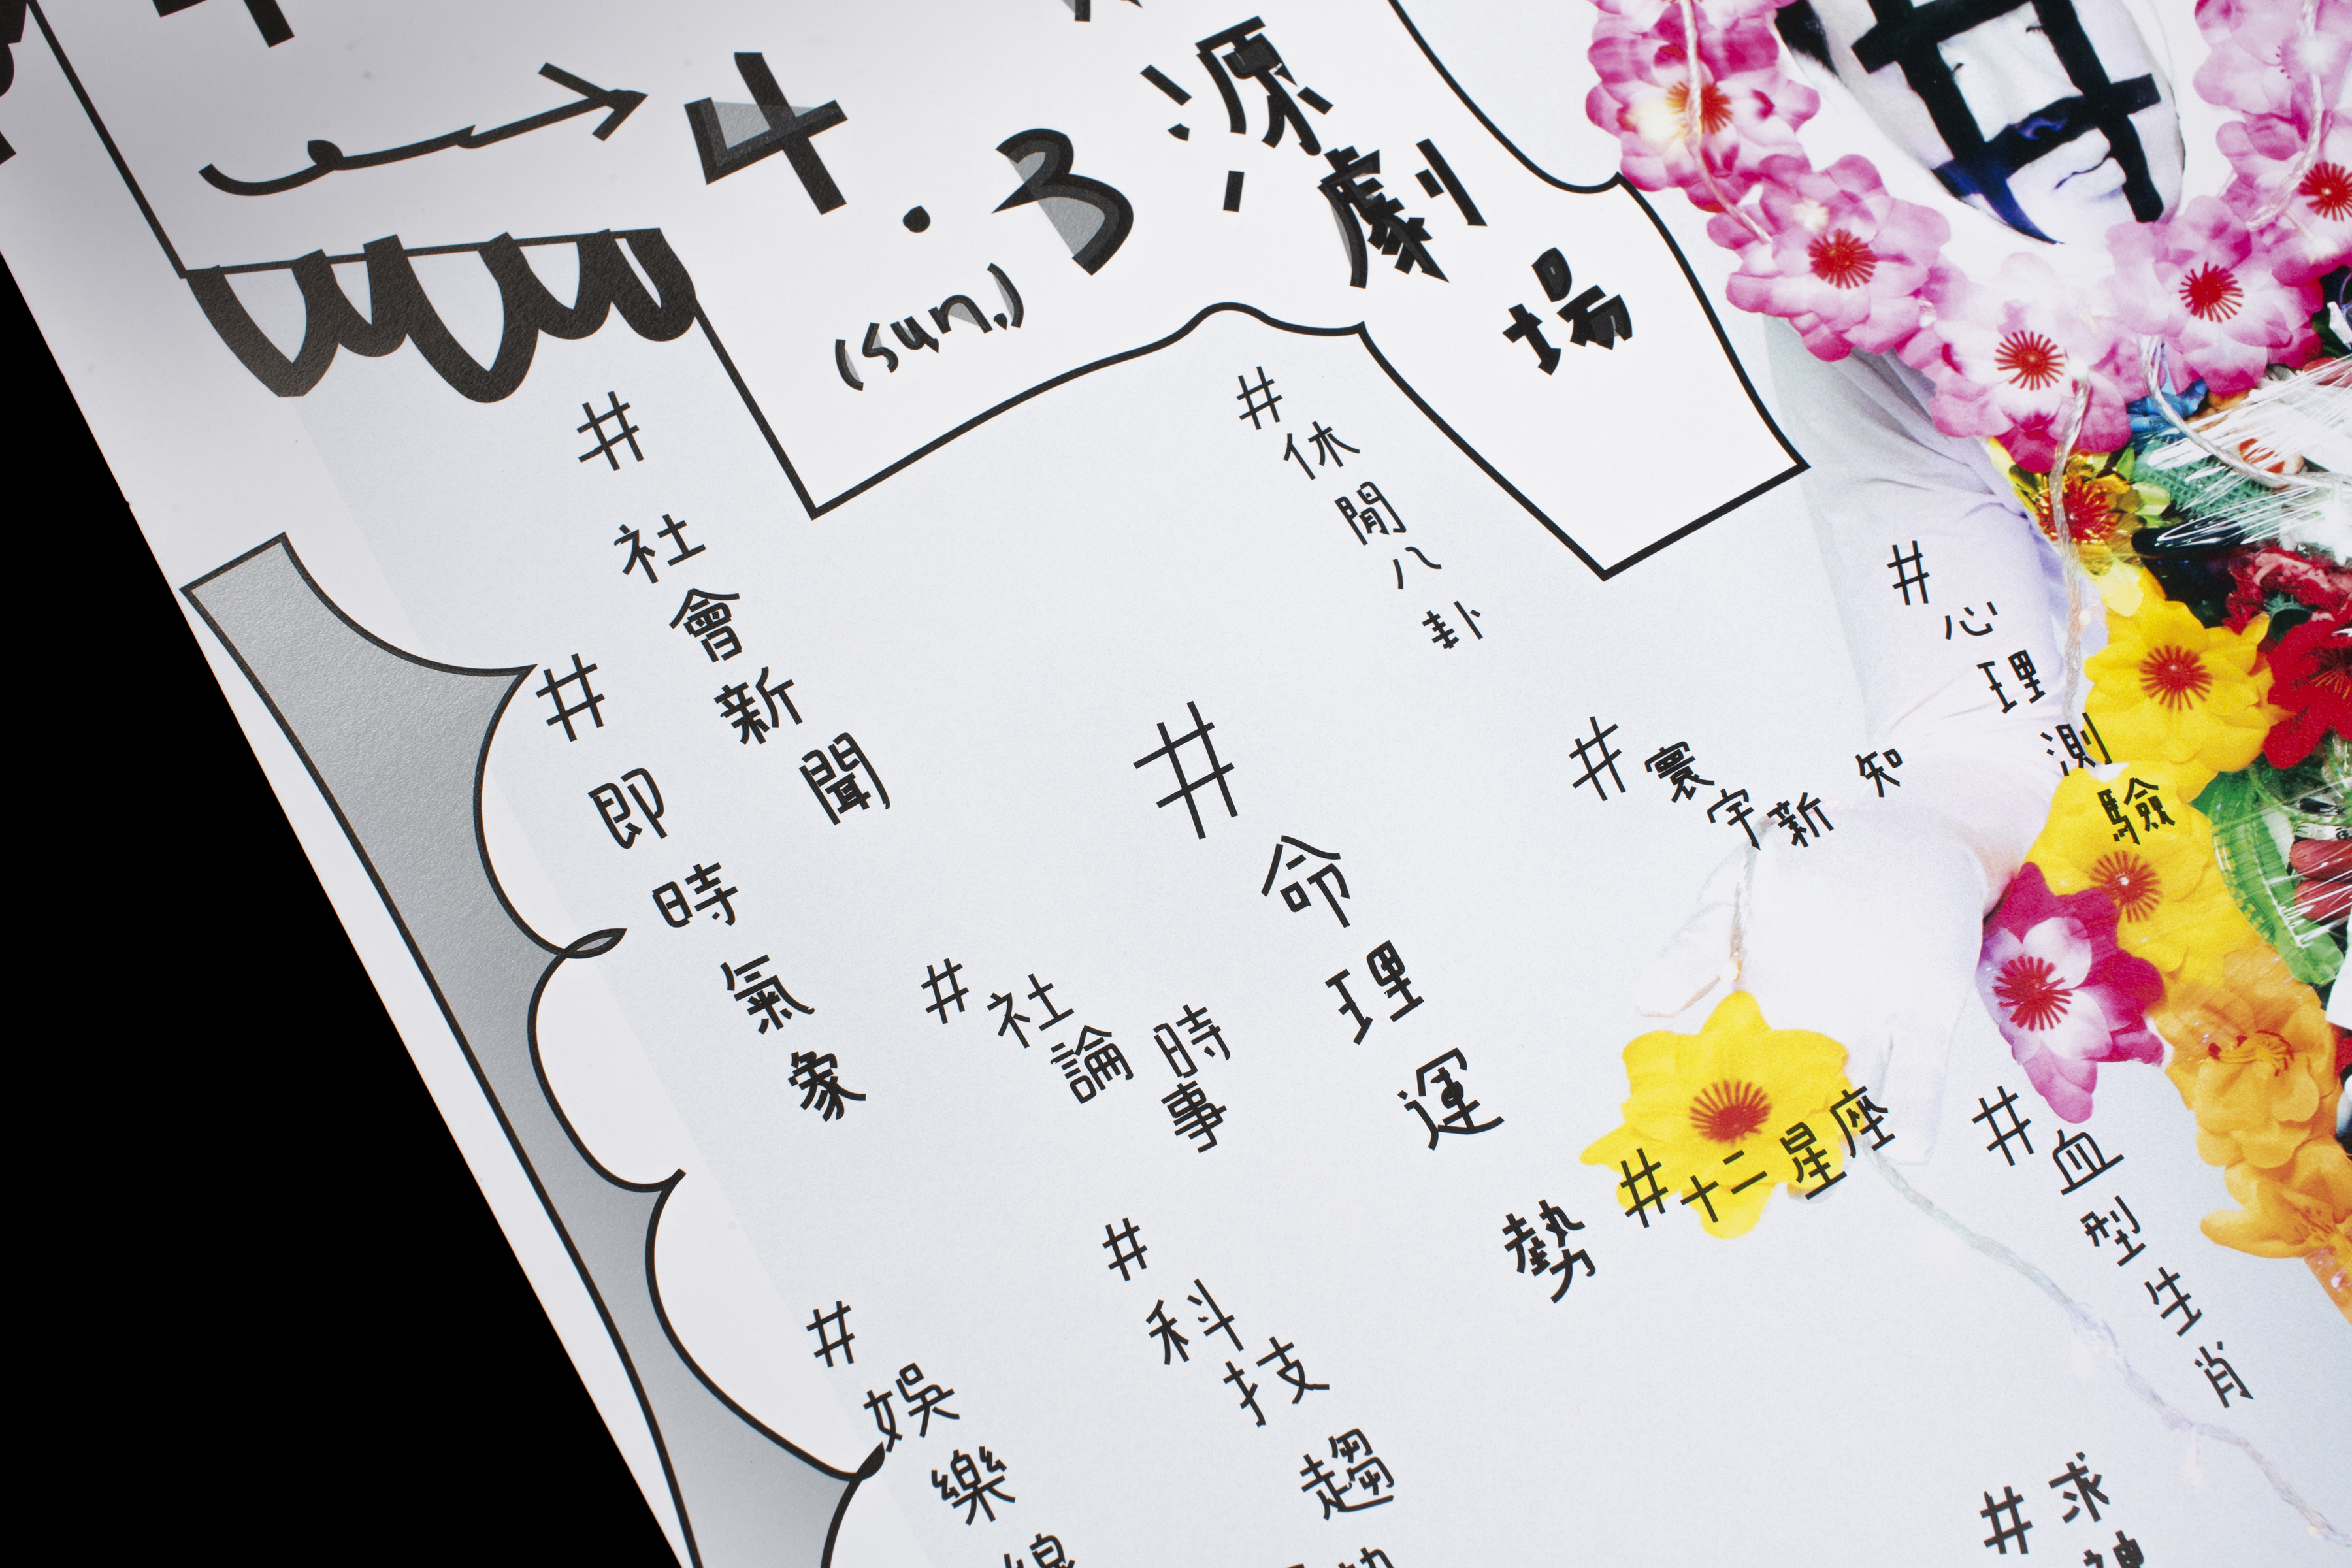 4.3
(sun.)
源劇場
#社會新聞
#即時氣象
#休閒八卦
#命理運勢
#寰宇新知
#心理測驗
#社論時事
#十二星座
#血型生肖
#科技趨
#娛樂
#求